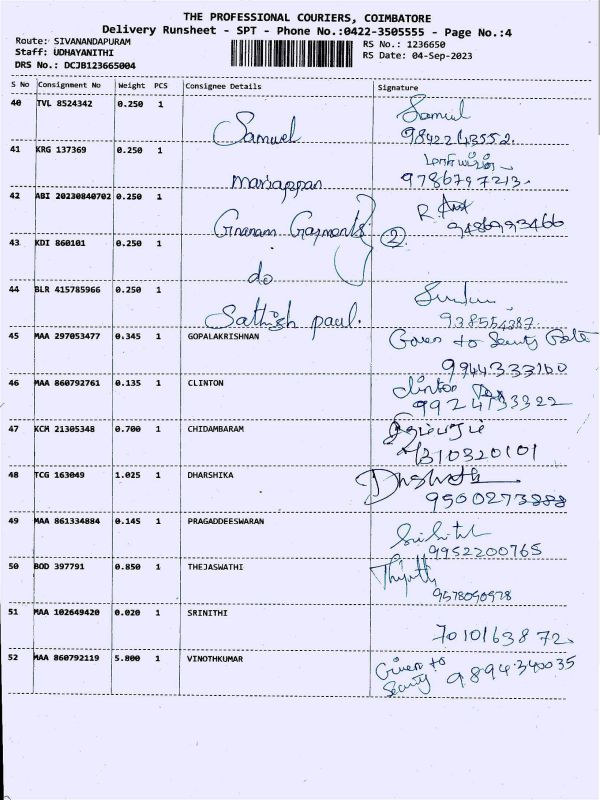 THE PROFESSIONAL COURIERS, COIMBATORE
Delivery Runsheet - SPT - Phone No.:0422-3505555 - Page No.:4
Route: SIVANANDAPURAM
RS No.: 1236650
Staff: UDHAYANITHI
RS Date: 04-Sep-2023
DRS No.: DCJB123665004
S No Consignment No Weight PCS Consignee Details Signature
40 TVL 8524342 0.250 1 Samuel Samuel
9842243552.
41 KRG 137369 0.250 1 mariappan
9786797213.
42 ABI 20230840702 0.250 1 Gnanam Garments R.
9486993466
43 KDI 860101 0.250 1 do 2
44 BLR 415785966 0.250 1 Sathish paul.
938554387.
45 MAA 297053477 0.345 1 GOPALAKRISHNAN Given to Security Gate
9944333160
46 MAA 860792761 0.135 1 CLINTON Clinton
9924733322
47 KCM 21305348 0.700 1 CHIDAMBARAM
310320101
48 TCG 163049 1.025 1 DHARSHIKA
9500273888
49 MAA 861334884 0.145 1 PRAGADDEESWARAN
9952200765
50 BOD 397791 0.850 1 THEJASWATHI
9578090978
51 MAA 102649420 0.020 1 SRINITHI
7010163872.
52 MAA 860792119 5.800 1 VINOTHKUMAR Given to
Security 9894340035